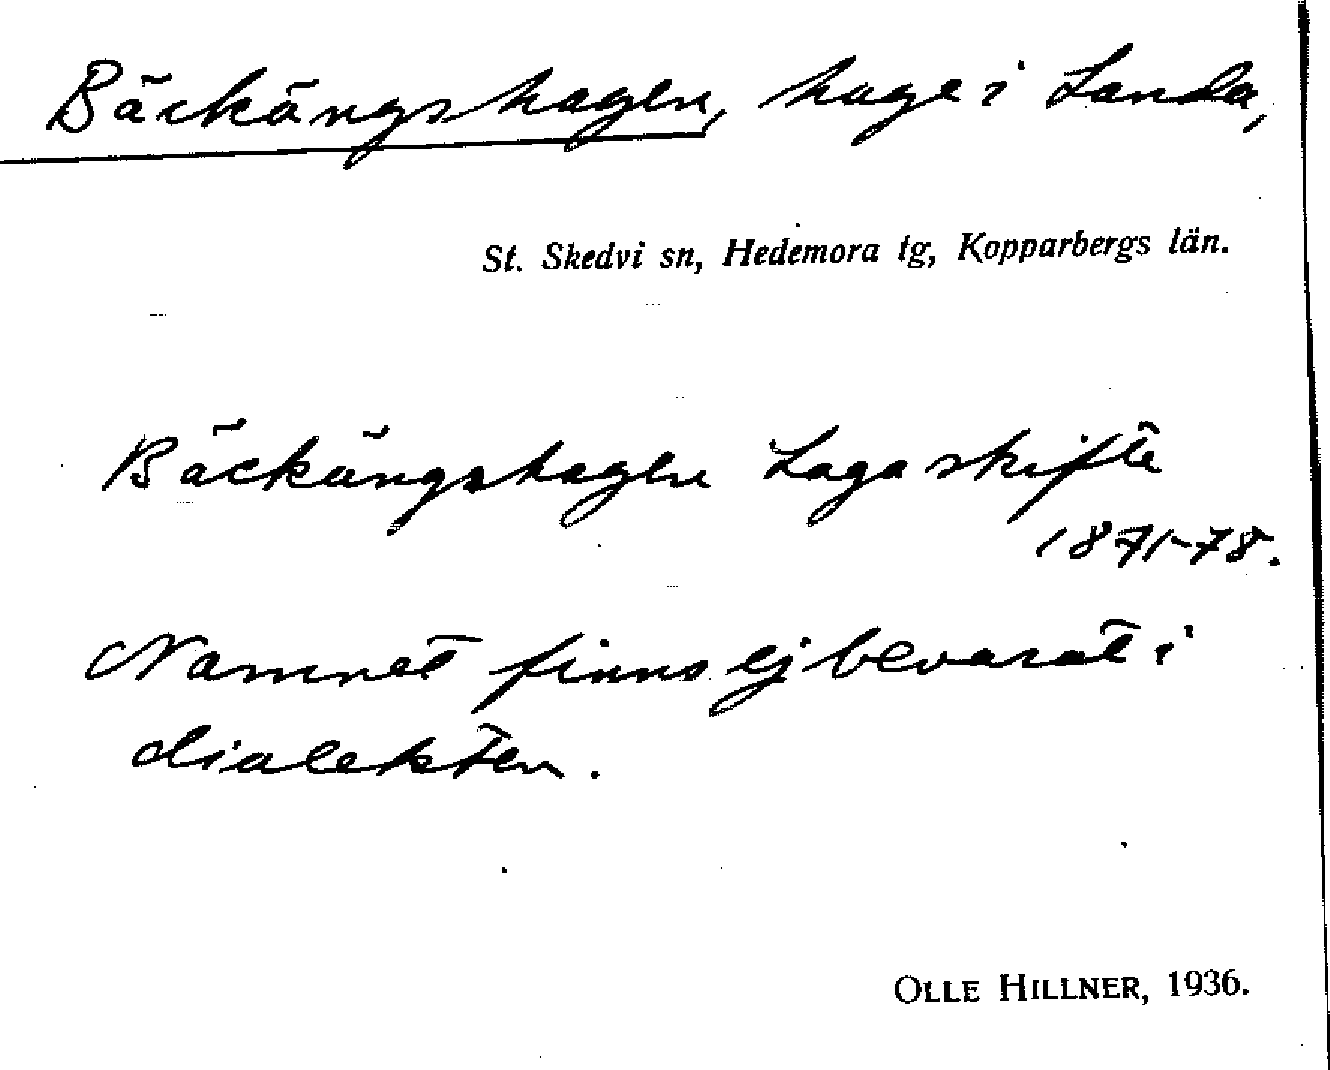 Bäckängshagen, hage i Landa,
St. Skedvi sn, Hedemora tg, Kopparbergs län.
Bäckängshagen Laga skifte
1871-78.
Namnet finns ej bevarat i
dialekten.
OLLE HILLNER, 1936.